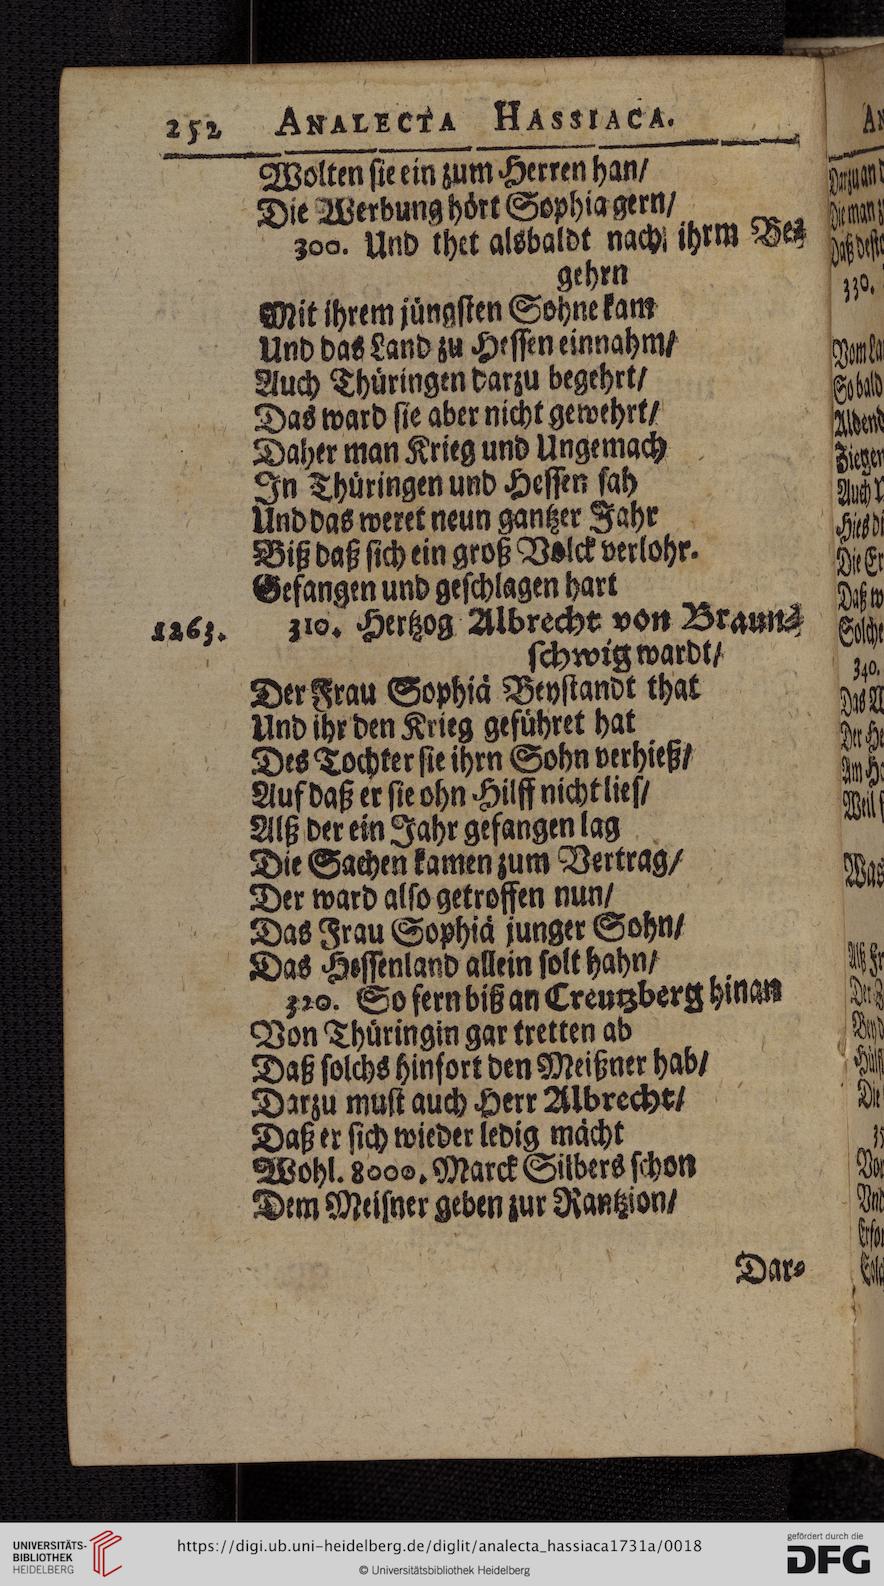 252 ANALECTA HASSIACA.
Wolten ſie ein zum Herren han/
Die Werbung hört Sophia gern/
300. Und thet alsbaldt nach ihrm Be⸗
gehrn
Mit ihrem jüngſten Sohne kam
Und das Land zu Heſſen einnahm/
Auch Thüringen darzu begehrt/
Das ward ſie aber nicht gewehrt/
Daher man Krieg und Ungemach
In Thüringen und Heſſen ſah
Und das weret neun gantzer Jahr
Biß daß ſich ein groß Volck verlohr.
Gefangen und geſchlagen hart
1263. 310. Hertzog Albrecht von Braun⸗
ſchwig wardt/
Der Frau Sophiä Beyſtandt that
Und ihr den Krieg geführet hat
Des Tochter ſie ihrn Sohn verhieß/
Auf daß er ſie ohn Hilff nicht lieſ/
Alß der ein Jahr gefangen lag
Die Sachen kamen zum Vertrag/
Der ward alſo getroffen nun/
Das Frau Sophiä junger Sohn/
Das Heſſenland allein ſolt hahn/
320. So fern biß an Creutzberg hinan
Von Thüringin gar tretten ab
Daß ſolchs hinfort den Meißner hab/
Darzu muſt auch Herr Albrecht/
Daß er ſich wieder ledig mächt
Wohl. 8000. Marck Silbers ſchon
Dem Meiſner geben zur Rantzion/
Dar⸗
330.
340.
Was
UNIVERSITÄTS-
BIBLIOTHEK
HEIDELBERG
https://digi.ub.uni-heidelberg.de/diglit/analecta_hassiaca1731a/0018
© Universitätsbibliothek Heidelberg
gefördert durch die
DFG